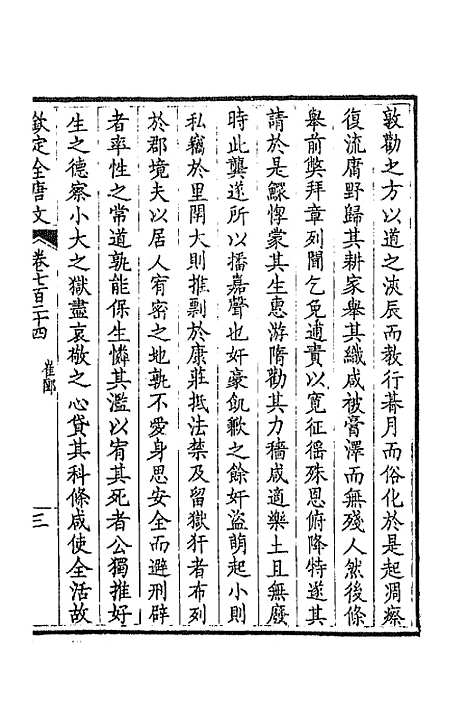 敦勸之方以道之浹辰而教行朞月而俗化於是起凋瘵
復流庸野歸其耕家舉其織咸被膏澤而無殘人然後條
舉前獘拜章列聞乞免逋責以寛征徭殊恩俯降特遂其
請於是鰥惸蒙其生惠游惰勸其力穡咸適樂土且無廢
時此龔遂所以播嘉聲也奸豪飢歉之餘奸盜萌起小則
私竊於里閈大則推剽於康莊抵法禁及留獄犴者布列
於郡境夫以居人宥密之地孰不愛身思安全而避刑辟
者率性之常道孰能保生憐其濫以宥其死者公獨推好
生之德察小大之獄盡哀敬之心貸其科條咸使全活故
欽定全唐文 卷七百二十四 崔郾 三